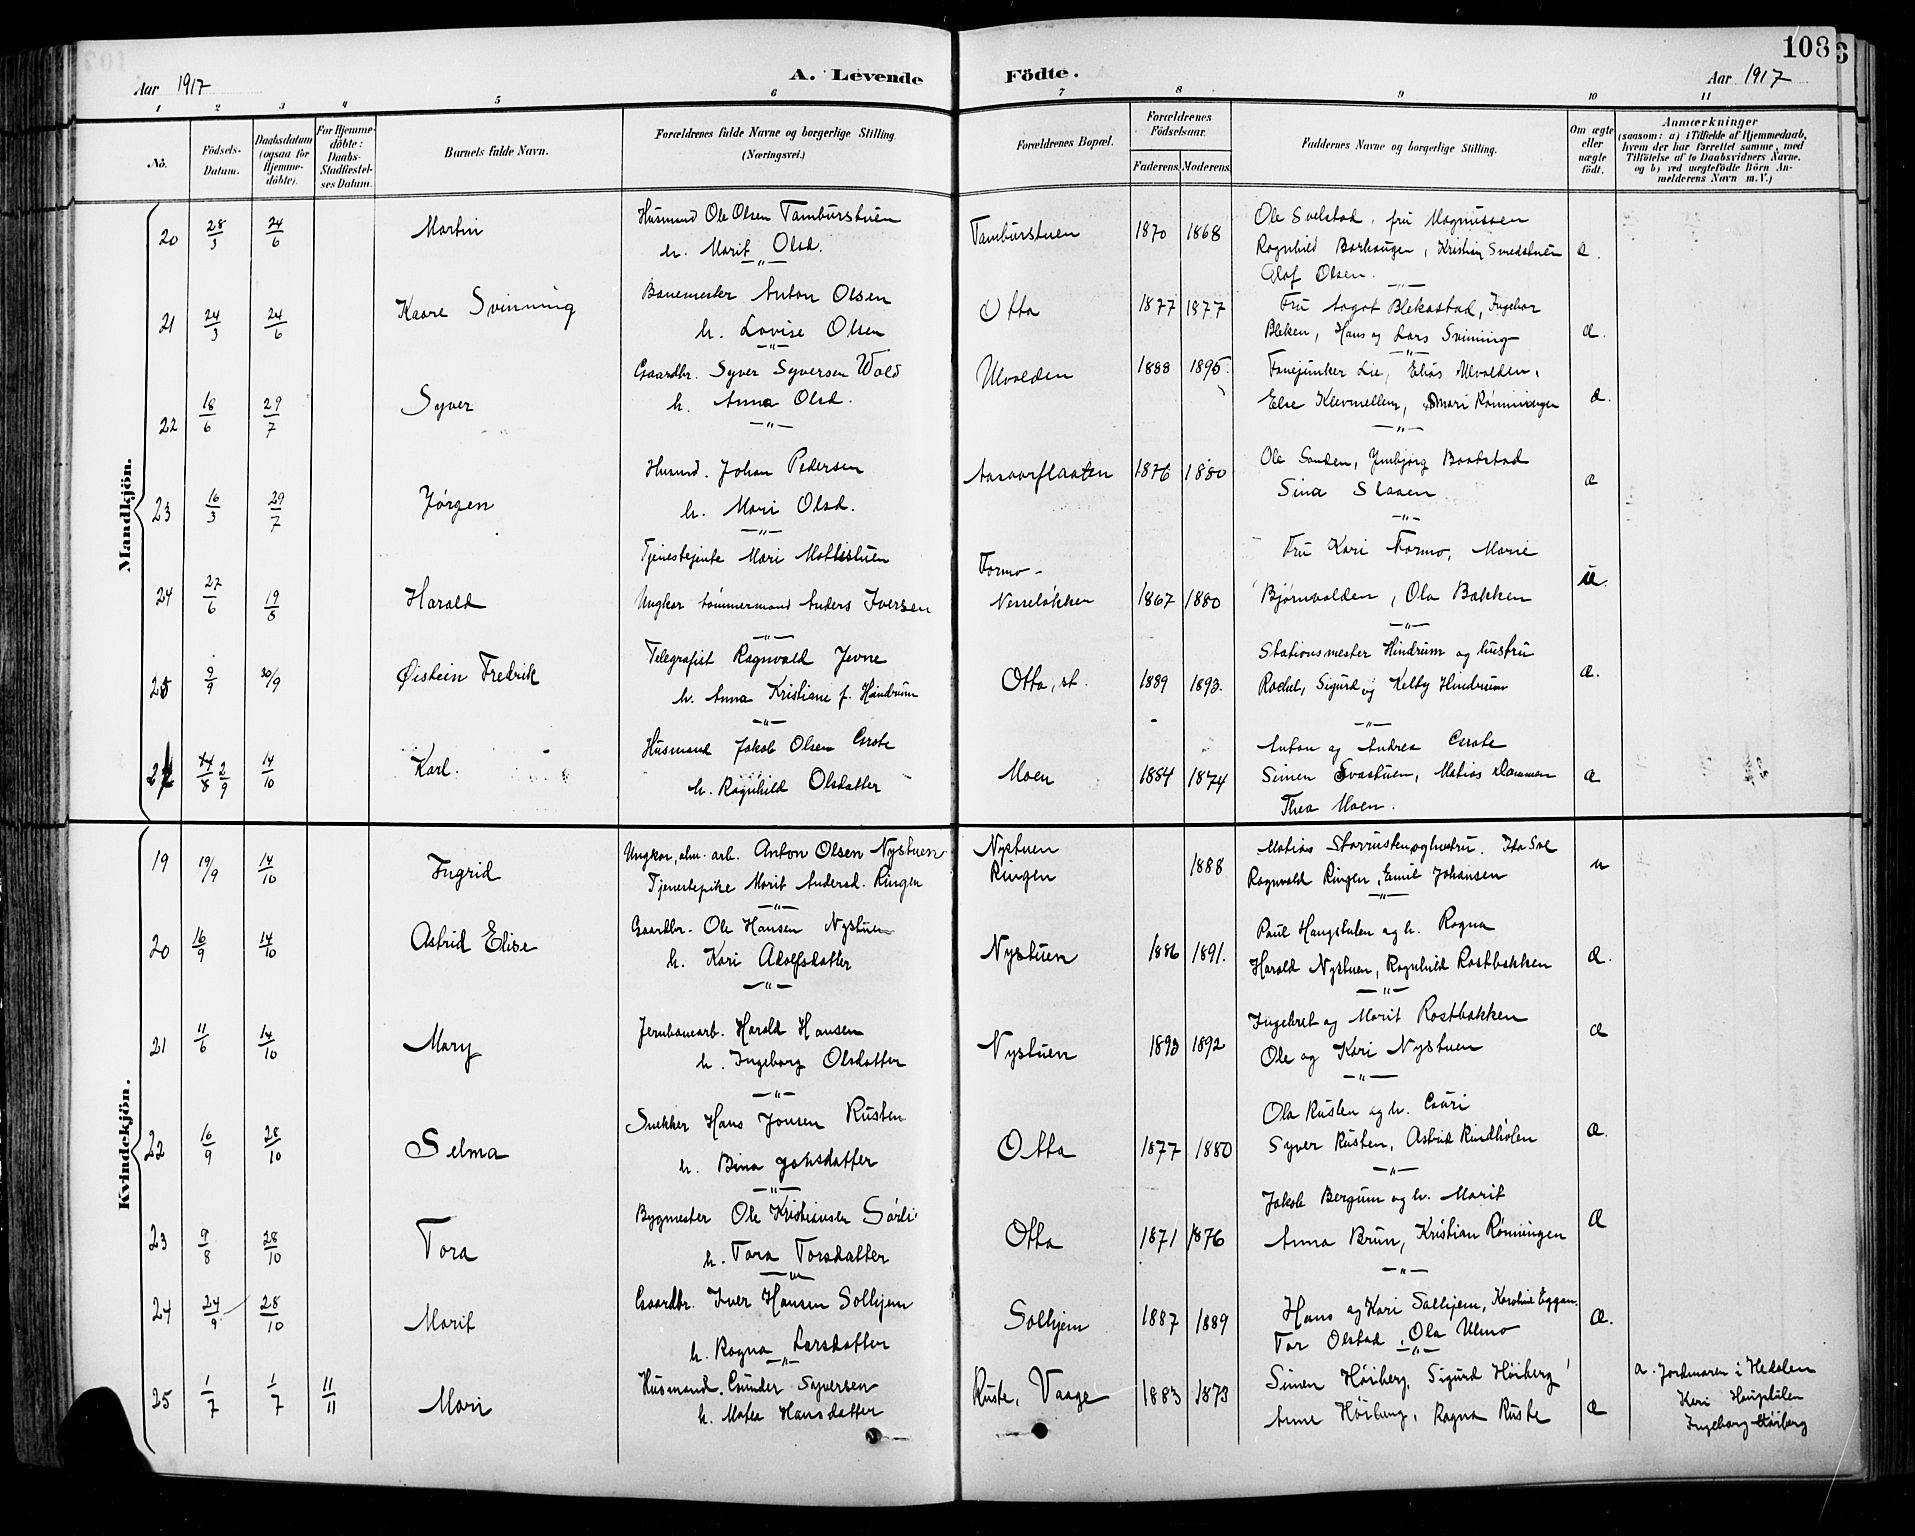 108
Aar 1917
A. Levende Födte.
Aar 1917
1 2 3 4 5 6 7 8 9 10 11
No.
Födsels-Datum.
Daabsdatum (ogsaa for Hjemme-döbte).
For Hjemme-döbte: Daabs-Stadfæstel-ses Datum.
Barnets fulde Navn.
Forældrenes fulde Navne og borgerlige Stilling. (Næringsvei.)
Forældrenes Bopæl.
Forældrenes Födselsaar.
Faderens. Moderens.
Faddernes Navne og borgerlige Stilling.
Om ægte eller uægte födt.
Anmærkninger
(saasom: a) i Tilfælde af Hjemmedaab, hvem der har forrettet samme, med Tilföielse af to Daabsvidners Navne, og b) ved uægtefödte Börn An-melderens Navn m. V.)
Mandkjön.
20 28/3 24/6 Martin Husmand Ole Olsen Tamburstuen Tamburstuen 1870 1868 Ole Selstad, fru Magnussen
h. Marit Olsd. Ragnhild Barhaugen, Kristian Smedstuen æ.
Olof Olsen.
21 24/3 24/6 Kaare Svinning Banemester Anton Olsen Otta 1877 1877 Fru Aagot Blekastad, Ingebor
h. Lovise Olsen Bleken, Hans og Lars Svinning æ.
22 18/6 29/7 Syver Gaardbr. Syver Syversen Wold Ulvolden 1888 1895. Fanejunker Lie, Eliäs Ulvolden,
h. Anna Olsd. Else Kleivmellem, Mari Rønningen æ.
23 16/3 29/7 Jørgen Husmd. Johan Pedersen Aasaarflaaten 1876 1880 Ole Sanden, Ymbjørg Baatstad
h. Mari Olsd. Sina Slaaen æ
24 27/6 19/8 Harald Tjenestejente Mari Mattistuen Formo- Fru Kari Formo, Marie
Ungkar tømmermand Anders Iversen Nerreløkken 1867 1880 Bjørnvolden, Ola Bakken u.
25 9/9 30/9 Øistein Fredrik Telegrafist Ragnvald Jevne Otta, st. 1889 1893. Stationsmester Hindrum og hustru
h. Anna Kristiane f. Hindrum Rachel, Sigurd og Kelby Hindrum æ.
27 2/9 14/10 Karl. Husmand Jakob Olsen Grote Moen 1884 1874 Anton og Andrea Grote
h. Ragnhild Olsdatter Simen Svastuen, Matias Dammen æ
Thea Moen.
Kvindekjön.
19 19/9 14/10 Ingrid Ungkar, alm. arb. Anton Olsen Nystuen Nystuen 1888 Matias Storrusten og hustru.
Tjenestepike Marit Andersd. Ringen Ringen Ragnvald Ringen, Emil Johansen u
20 16/9 14/10 Astrid Elise Gaardbr. Ole Hansen Nystuen Nystuen 1886 1891. Paul Haugstulen og h. Ragna
h. Kari Adolfsdatter Harald Nystuen, Ragnhild Rostbakken æ.
21 11/6 14/10 Mary Jernbanearb. Harald Hansen Nystuen 1893 1892 Ingebret og Marit Rostbakken
h. Ingeborg Olsdatter Ole og Kari Nystuen æ
22 16/9 28/10 Selma Snekker Hans Jonsen Rusten Otta 1877 1880 Ola Rusten og h. Guri
h. Bina Johsdatter Syver Rusten, Astrid Rindhølen æ.
23 9/8 28/10 Tora Bygmester Ole Kristiansen Sørli Otta 1871 1876 Jakob Bergum og h. Marit
h. Tora Torsdatter Anna Brun, Kristian Rønningen æ
24 24/9 28/10 Marit Gaardbr. Iver Hansen Solhjem Solhjem 1887 1889 Hans og Kari Solhjem, Karoline Eggan.
h. Ragna Larsdatter Tor Olstad, Ola Ulmo æ.
25 1/7 1/7 11/11 Mari Husmand. Gunder Syversen Ruste, Vaage 1883 1873 Simen Høiberg, Sigurd Høiberg
h. Matea Hansdatter Anne Høiberg, Ragna Ruste æ
a. Jordmoren i Hedalen
Kari Haugstulen
Ingeborg Høiberg